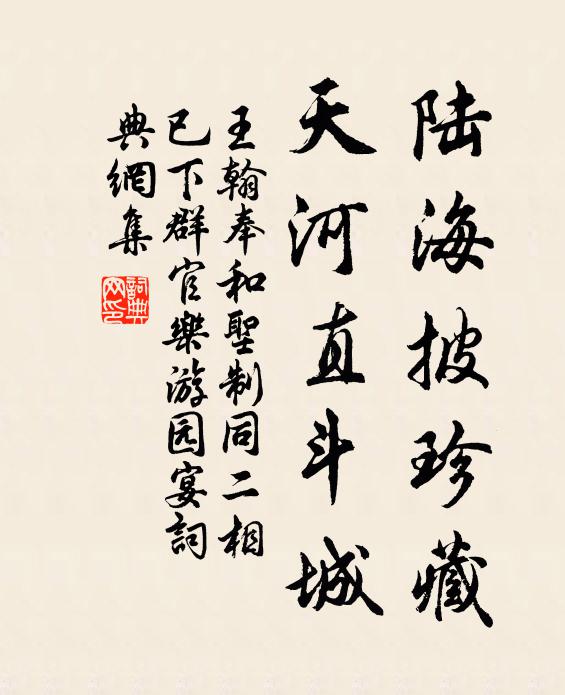 陆海披珍藏
天河直斗城
王翰奉和聖制同二相
已下群官樂游园宴詞
典網集
詞典
网印